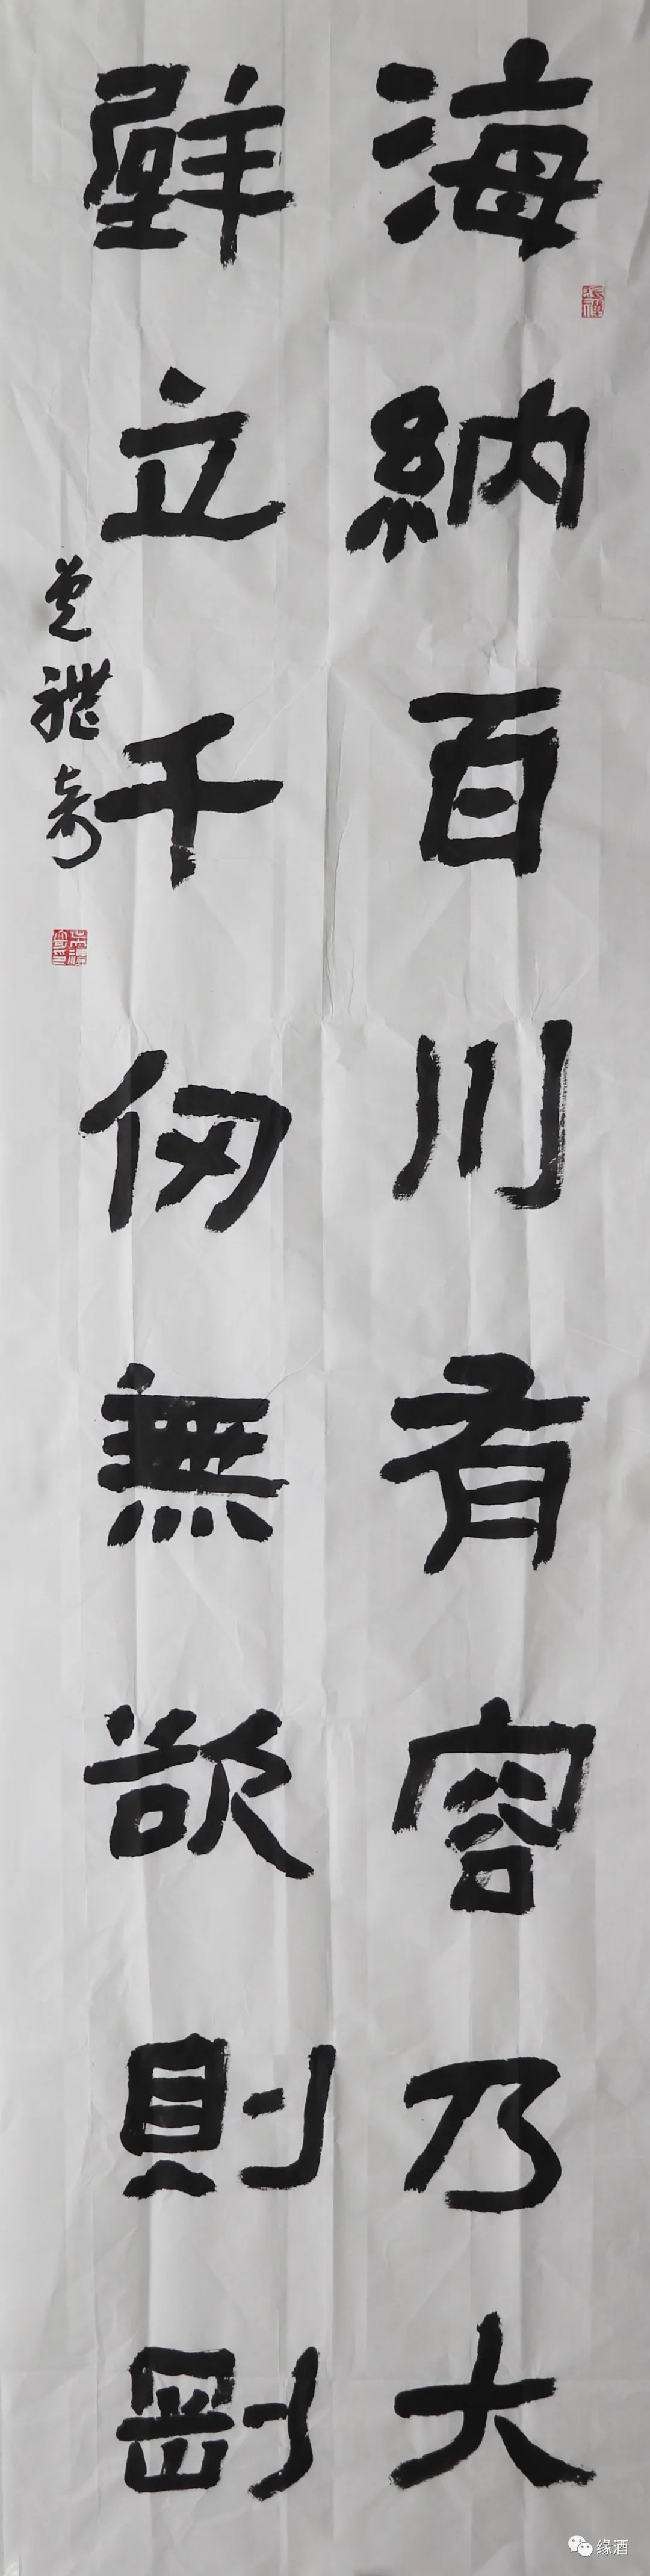 海納百川有容乃大
壁立千仞無欲則剛
缘酒